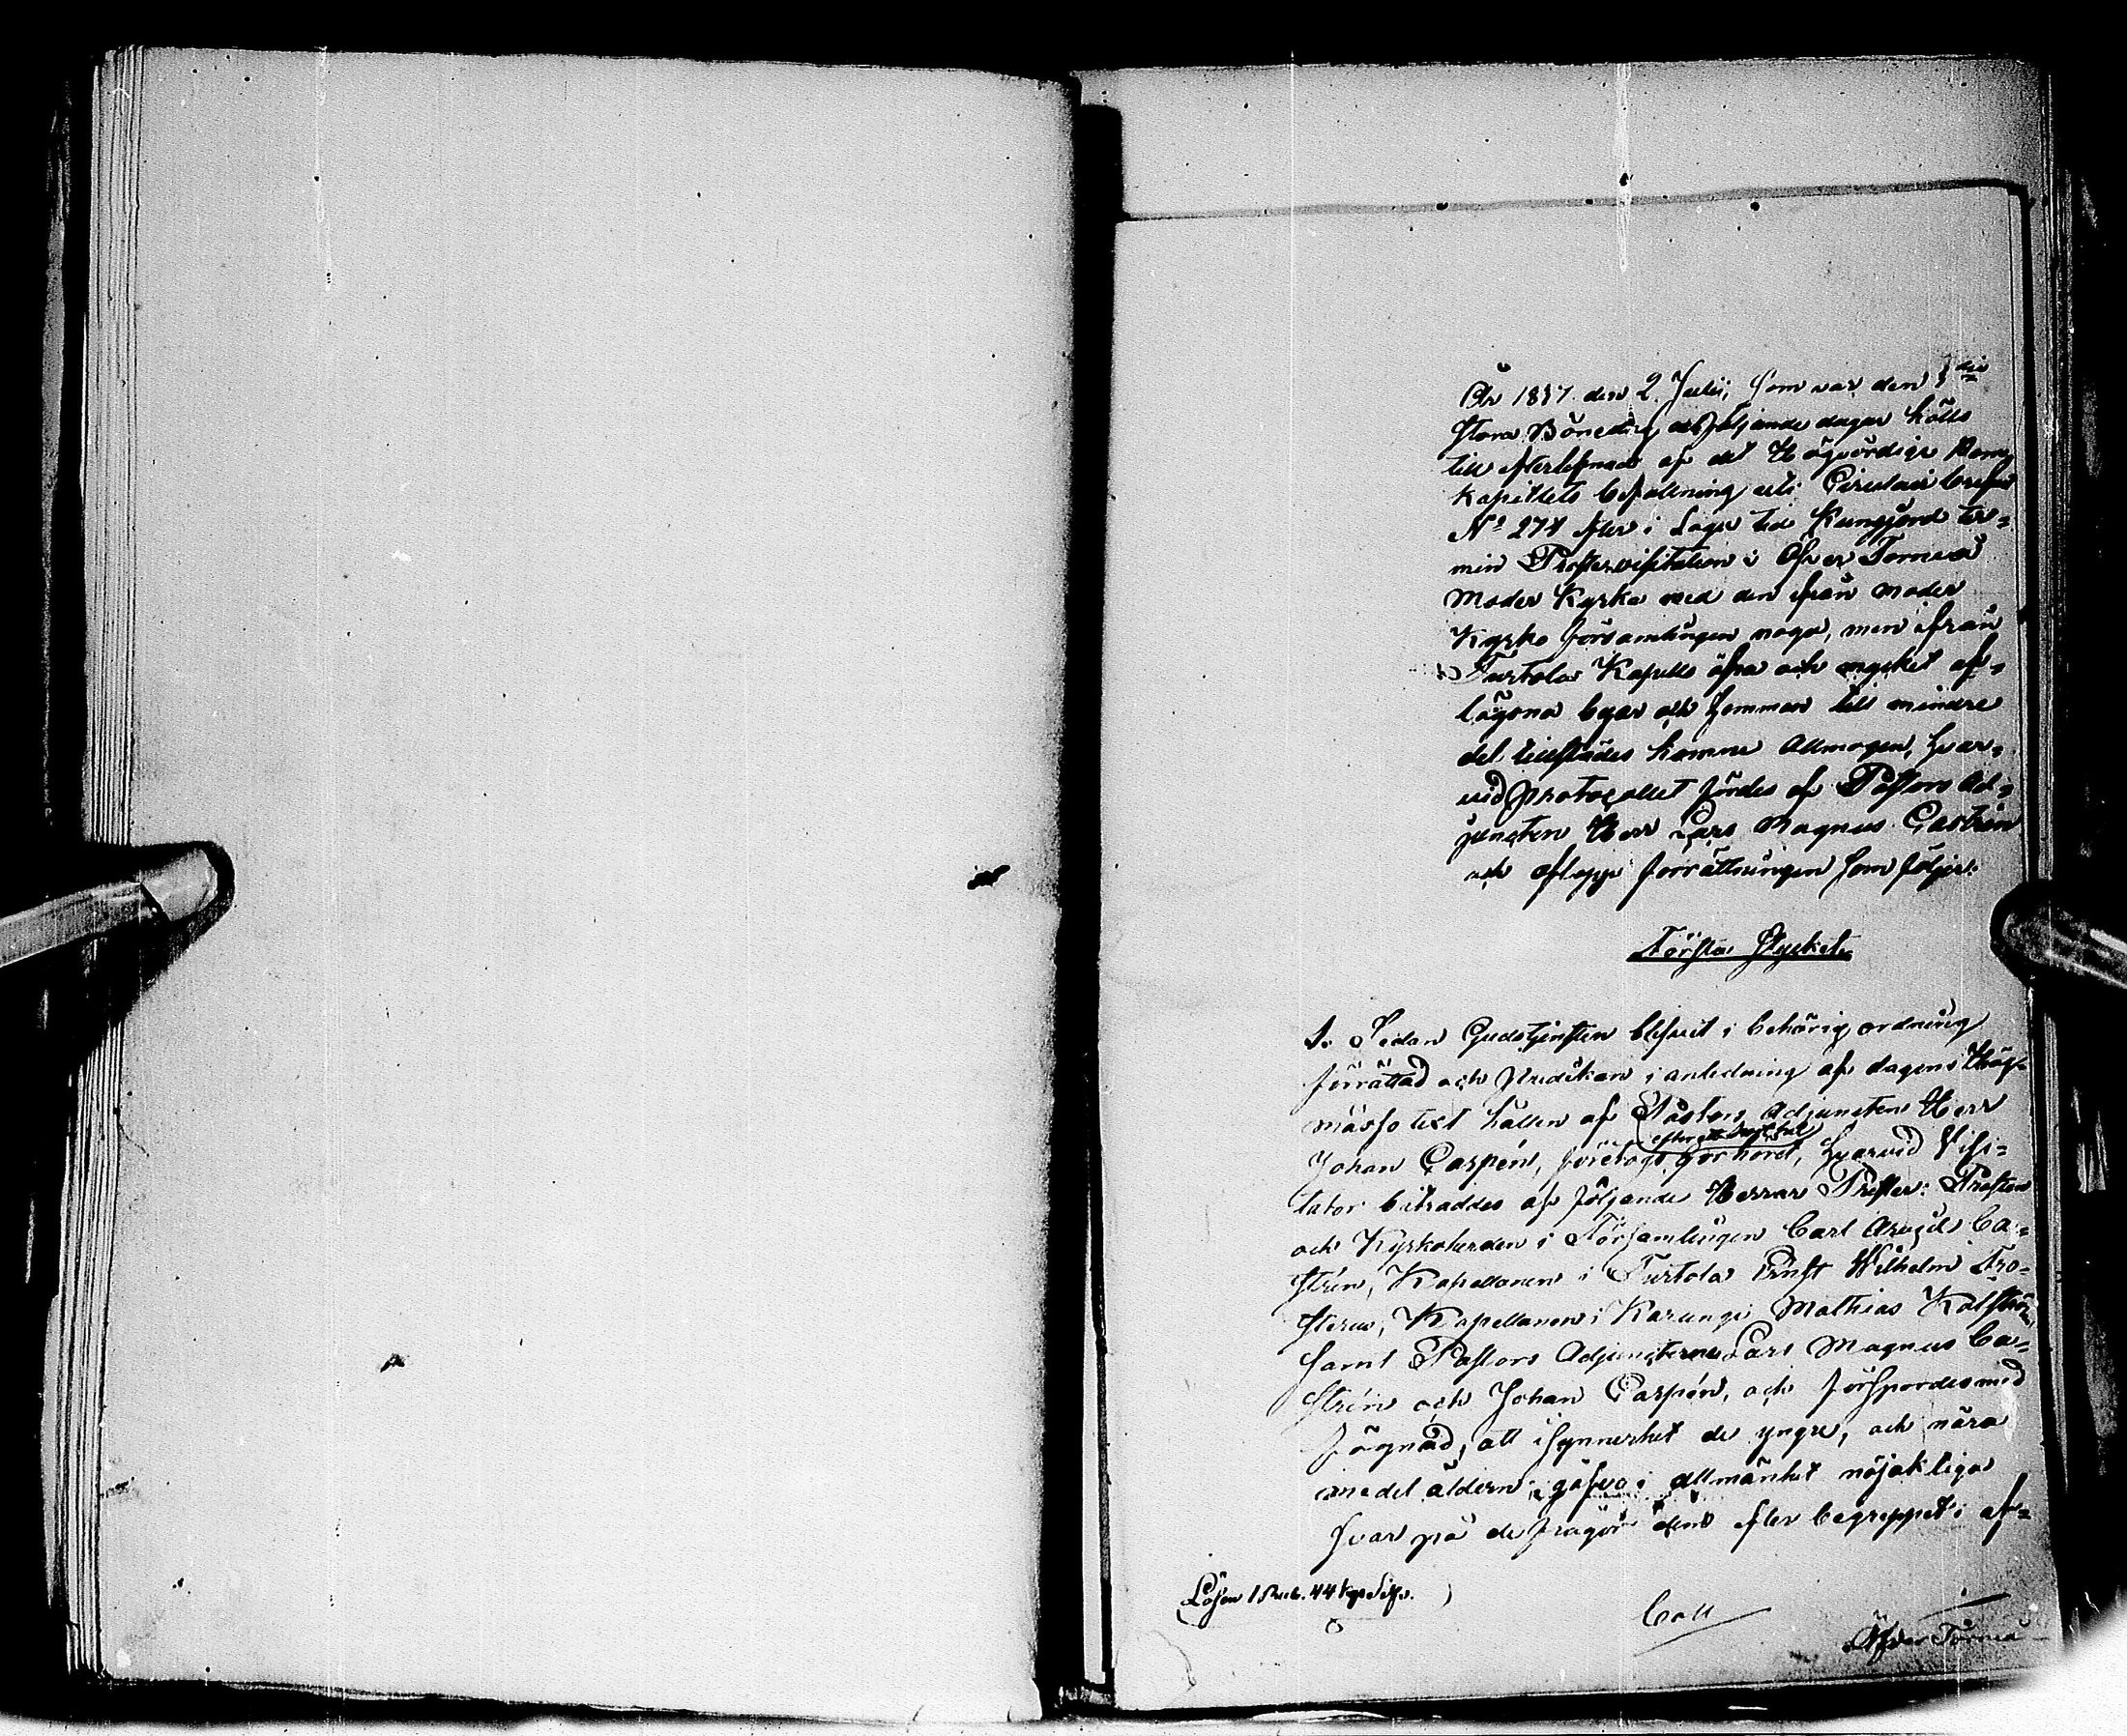 År 1837 den 2 Julii, som var den 3die
stora Bönedag och följande dagar hölls
till efterlefnad af det Högvördige Dom
kapitlets befallning uti Circulair brefvet
No 274 efter i Laga tid Kungjord ter-
min Prostevisitation i Öfver Torneå
Moder Kyrka med den ifrån moder
Kyrko församlingen noga, men ifrån
Turtola Kapells öfra och mycket af-
lägsna byar och hemman till mindre
del tillstädes komne Allmogen, hvar-
vid protocollet fördes af Pastors Ad-
juncten Herr Lars Magnus Castrén
och aflopp förrättningen som följer:
Första Stycket
1. Sedan Gudstjensten blifvit i behörig ordning
förrättad och Predikan i anledning af dagens Hög-
mässo text hållen af Pastors Adjuncten Herr
efter ett kort tal
Johan Caspén, företogs förhöret, hvarvid Visi-
tator biträddes af följande Herrar Prester: Prosten
och Kyrkoherden i Församlingen Carl Arvid Ca-
strén, Kapellanen i Turtola Ernst Wilhelm Fro-
sterus, Kapellanen i Karungi Mathias Kolström,
samt Pastors Adjuncterne Lars Magnus Ca-
strén och Johan Caspén, och förspordes med
fögnad, att isynnerhet de yngre, och nära
en del äldern, gåfvo i allmänhet nöjaktiga
svar på de frågor dem efter begreppet i af-
Lösen 1 Rub. 44 kop Silfv.
Coll
Öfver Torneå